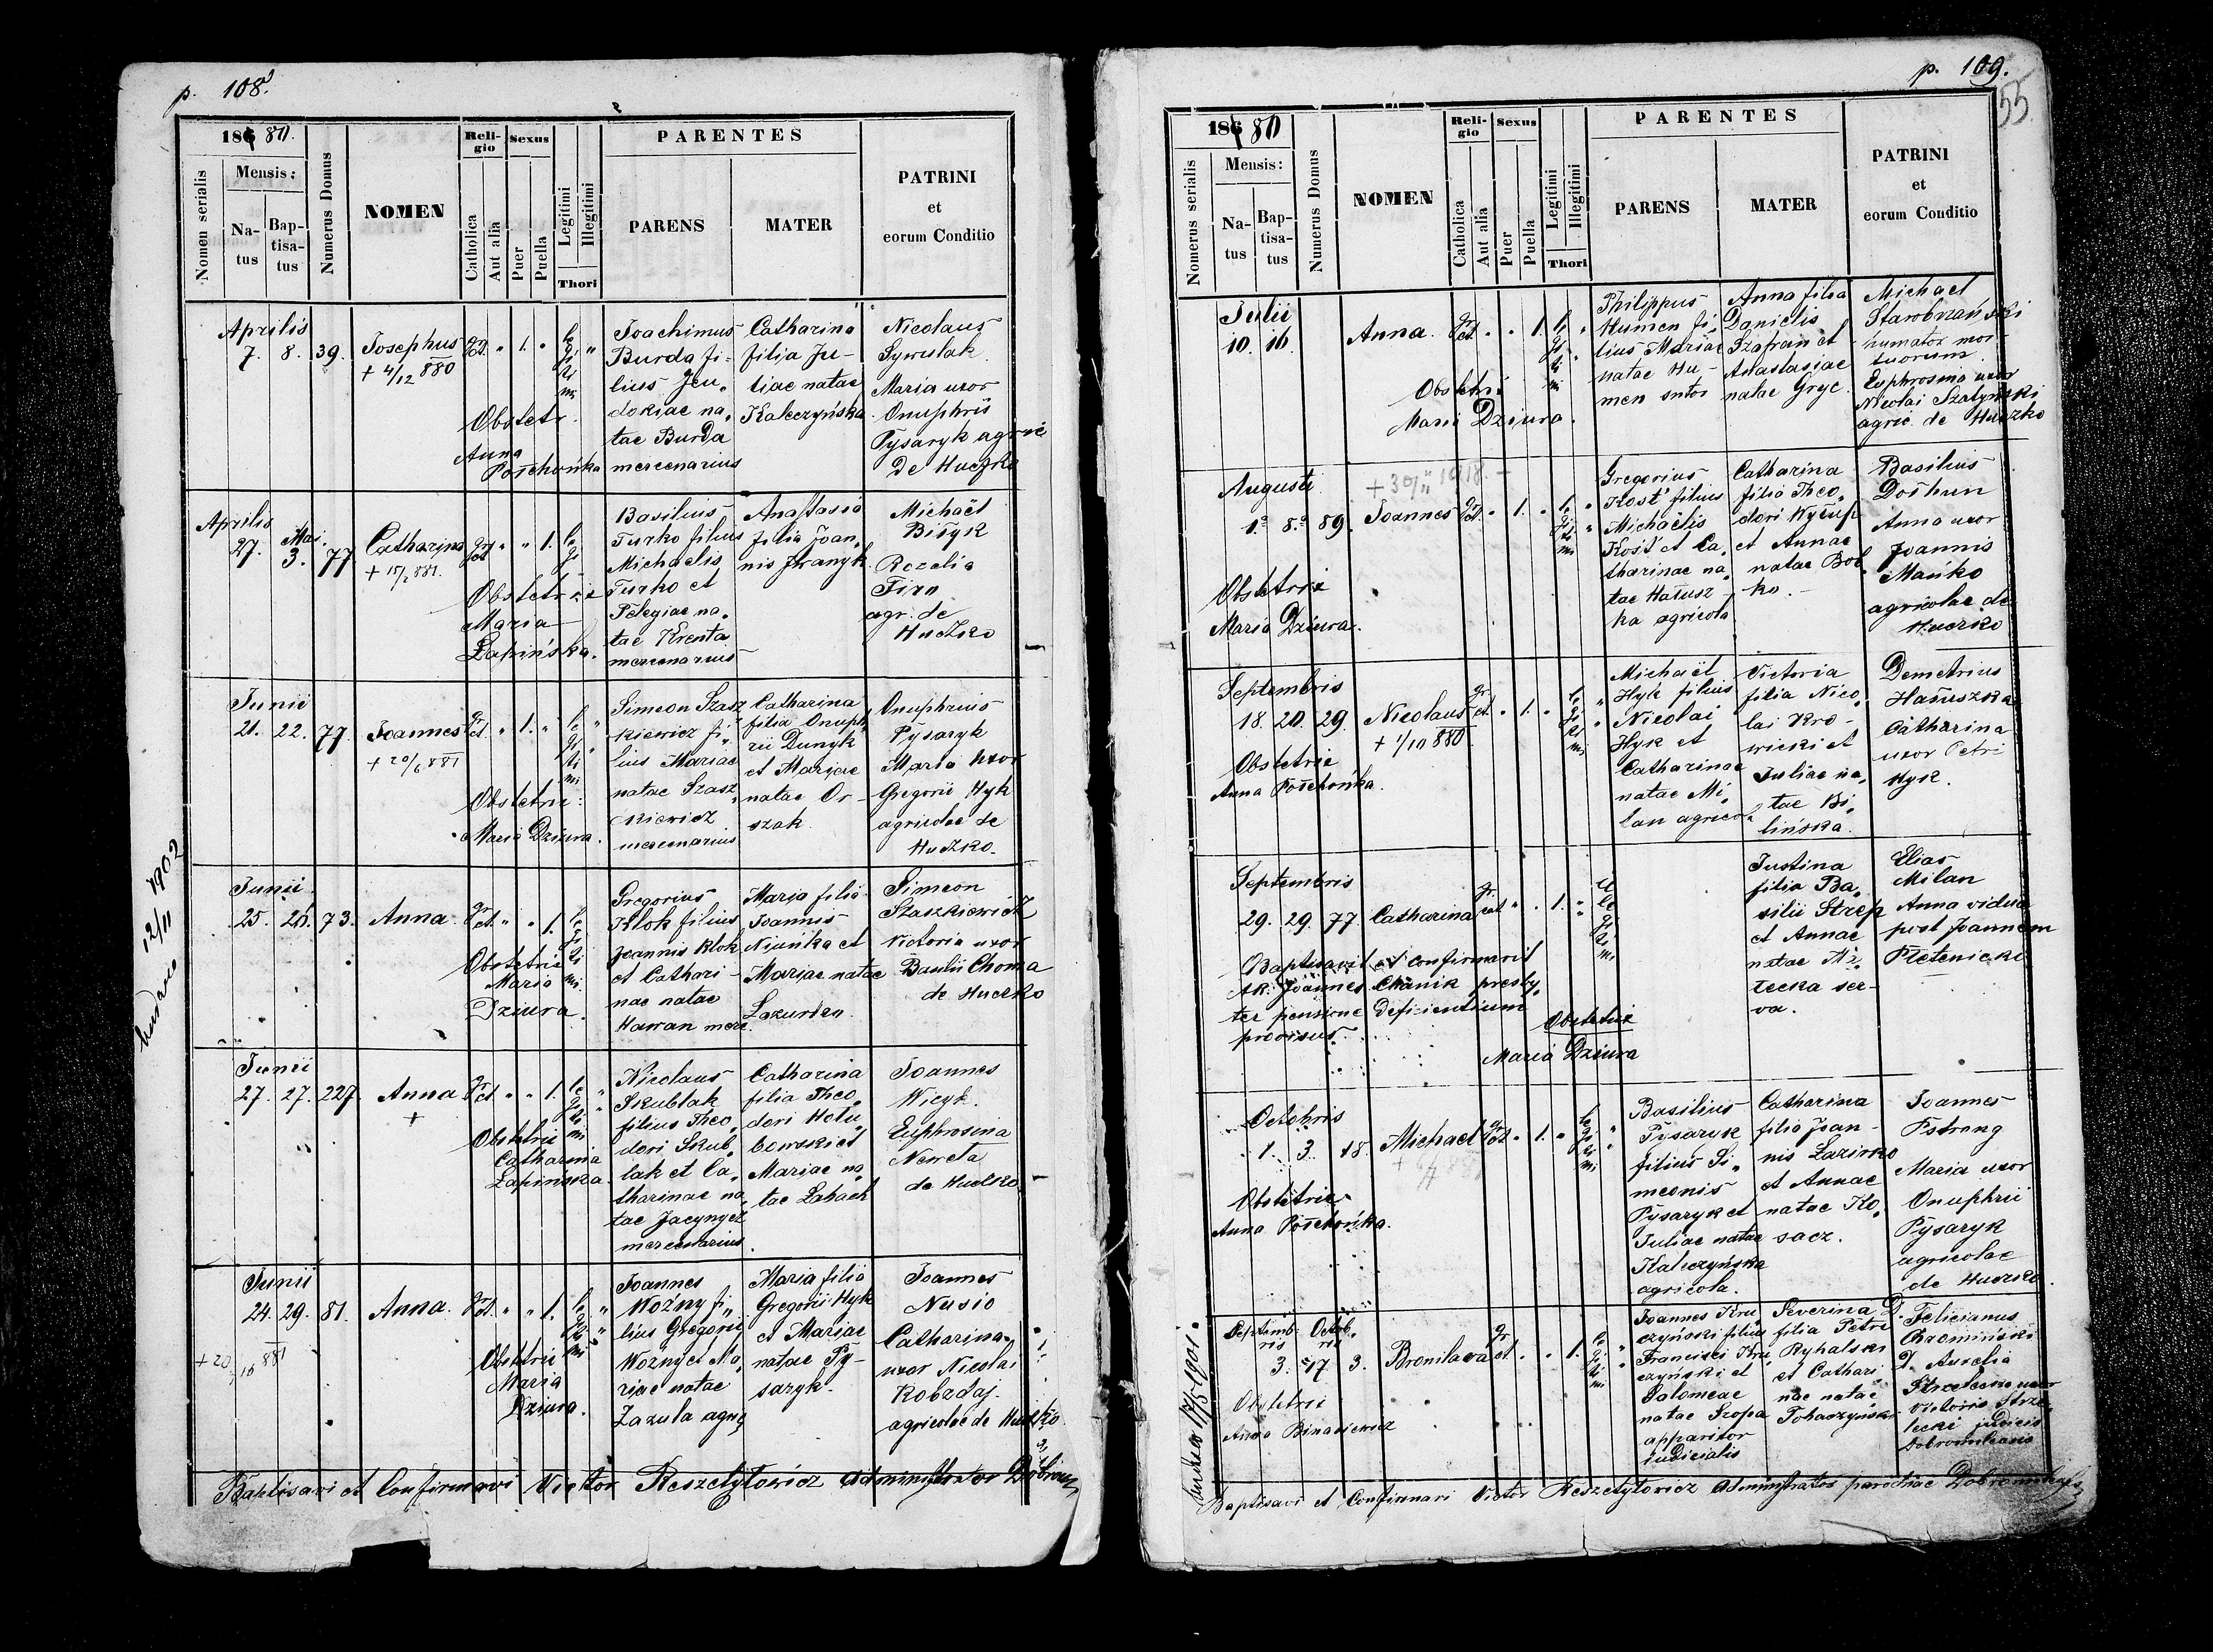 p. 108.
186 80.
Nomen serialis
Mensis:
Na-
tus
Bap-
tisa-
tus
Numerus Domus
NOMEN
Reli-
gio
Catholica
Aut alia
Sexus
Puer
Puella
Legitimi
Illegitimi
Thori
PARENTES
PARENS
MATER
PATRINI
et
eorum Conditio
Aprilis
7. 8. 39.
Josephus
+ 4/12 880
gr ct. " 1. "
le
gi
ti
mi
Obstetr.
Anna
Połchońka
Joachimus
Burda fi-
lius Jeu„
dokiae na„
tae Burda
mercenarius
Catharina
filia Ju-
liae natae
Kalczyńska
Nicolaus
Sywulak
Maria uxor
Onuphrii
Pysaryk agric
de Huczko
Aprilis Mai
27. 3. 77
Catharina
+ 15/2 881.
" " 1.
le
gi
Obstetrix
Maria
Łapińska.
Basilius
Turko filius
Michaelis
Turko et
Pelegiae na„
tae Krenta
mercenarius
Anastasia
filia Joan„
nis Hranyk
Michaël
Biłyk
Rozalia
Firn
agr. de
Huczko
Junii
21. 22. 77.
Joannes
+ 20/6 881
gr ct. " 1. "
le
gi
ti
mi
Obstetrix:
Maria Dziura.
Simeon Szasz
kiewicz fi„
lius Mariae
natae Szasz„
kiewicz
mercenarius
Catharina
filia Onuph„
rii Dunyk
et Mariae
natae Or-
szak.
Onuphrius
Pysaryk
Maria uxor
Gregorii Hyk
agricolae de
Huczko.
Junii
25. 26. 73.
Anna
gr ct. " " 1.
le
gi
ti
mi.
Obstetrix
Maria
Dziura.
Gregorius
Klok filius
Joannis Klok
et Cathari-
nae natae
Hawan merc.
Maria filia
Joannis
Niuńka et
Mariae natae
Lazurko
Simeon
Szaszkiewicz
Victoria uxor
Basilii Choma
de Huczko
Junii
27. 27. 227.
Anna
+
gr ct. " " 1.
le
gi
ti
mi
Obstetrix
Catharina
Łapińska.
Nicolaus
Skublak
filius Theo„
dori Skub„
lak et Ca„
tharinae na„
tae Jacynycz
mercenarius.
Catharina
filia Theo„
dori Hołu„
bowski et
Mariae na„
tae Labach
Joannes
Wicyk.
Euphrosina
Neweta
de Huczko
Junii
24. 29. 81.
Anna.
+ 20/10 881
gr ct. " " 1.
le
gi
ti
mi
Obstetrix
Maria
Dziura.
Joannes
Woźny fi„
lius Gregorii
Woźny et Ma„
riae natae
Zazula agric
Maria filia
Gregorii Hyk
et Mariae
natae Py-
saryk.
Joannes
Nusio
Catharina
uxor Nicolai
Kobzdaj.
agricolae de Huczko
Baptisavi et Confirmavi Victor Reszetyłowicz Administrator Dobrom
12/11 1902
p. 109.
55
186 80
Nomerus serialis
Mensis:
Na-
tus
Bap-
tisa-
tus
Numerus Domus
NOMEN
Reli-
gio
Catholica
Aut alia
Sexus
Puer
Puella
Legitimi
Illegitimi
Thori
PARENTES
PARENS
MATER
PATRINI
et
eorum Conditio
Julii
10. 16.
Anna.
gr ct. " " 1.
le
gi
ti
mi
Obstetrix
Maria Dziura.
Philippus
Humen fi„
lius Mariae
natae Hu-
men sutor
Anna filia
Danielis
Szafran et
Anastasiae
natae Gryc.
Michael
Starobrzański
humator mor-
tuorum.
Euphrosina uxor
Nicolai Szatyński
agric. de Huczko
Augusti
1. 8. 89.
+ 30/11 1918.
Joannes
gr ct. " 1. "
le
gi
ti
mi
Obstetrix
Maria Dziura.
Gregorius
Kość filius
Michaëlis
Kość et Ca„
tharinae na„
tae Hałusz-
ka agricola
Catharina
filia Theo„
dori Wyłup
et Annae
natae Bob
ko.
Basilius
Dołhun
Anna uxor
Joannis
Mańko
agricolae de
Huczko
Septembris
18. 20. 29.
Nicolaus
+ 1/10 880
gr ct. " 1. "
le
gi
ti
mi
Obstetrix
Anna Połchońka.
Michaël
Hyk filius
Nicolai
Hyk et
Catharinae
natae Mi„
lan agricola
Victoria
filia Nico„
lai Kro-
wicki et
Juliae na„
tae Bi„
lińska.
Demetrius
Hałuszka
Catharina
uxor Petri
Hyk.
Septembris
29. 29. 77.
Catharina
gr ct " . 1. "
il
le
gi
ti
mi
Baptisavit et confirmavit
Joannes Chanik presby„
ter pensione deficientium
provisus.
Obstetrix
Maria Dziura
Justina
filia Ba„
silii Strep
et Annae
natae Mi„
tecka ser-
va.
Elias
Milan
Anna vidua
post Joannem
Pletenicki
Octobris
1. 3. 18.
Michael
gr ct " 1. "
le
gi
ti
mi
Obstetrix
Anna Połchońka.
Basilius
Pysaryk
filius Si„
meonis
Pysaryk et
Juliae natae
Kalczyńska
agricola.
Catharina
filia Joan-
nis Lazirko
et Annae
natae Ko„
sacz.
Joannes
Pstrong
Maria uxor
Onuphrii
Pysaryk
agricolae
de Huczko.
Septemb- Octob„
ris ris
3. 17 3.
Bronilava
gr ct. . " 1.
le
gi
ti
mi
Obstetrix
Anna Binasiewicz
Joannes Kru„
czyński filius
Francisci Kru„
czyński et
Salomeae
natae Szopa
apparitor
iudicialis
Severina D.
filia Petri
Ryhalski
et Cathari„
nae natae
Tobaczyński
Felicianus
Bromiński
D. Aurelia
Strzelecka uxor
Victoris Strze„
lecki judicis
Dobromileensis
Baptisavi et Confirmavi Victor Reszetyłowicz Administrator parochiae Dobromileensis